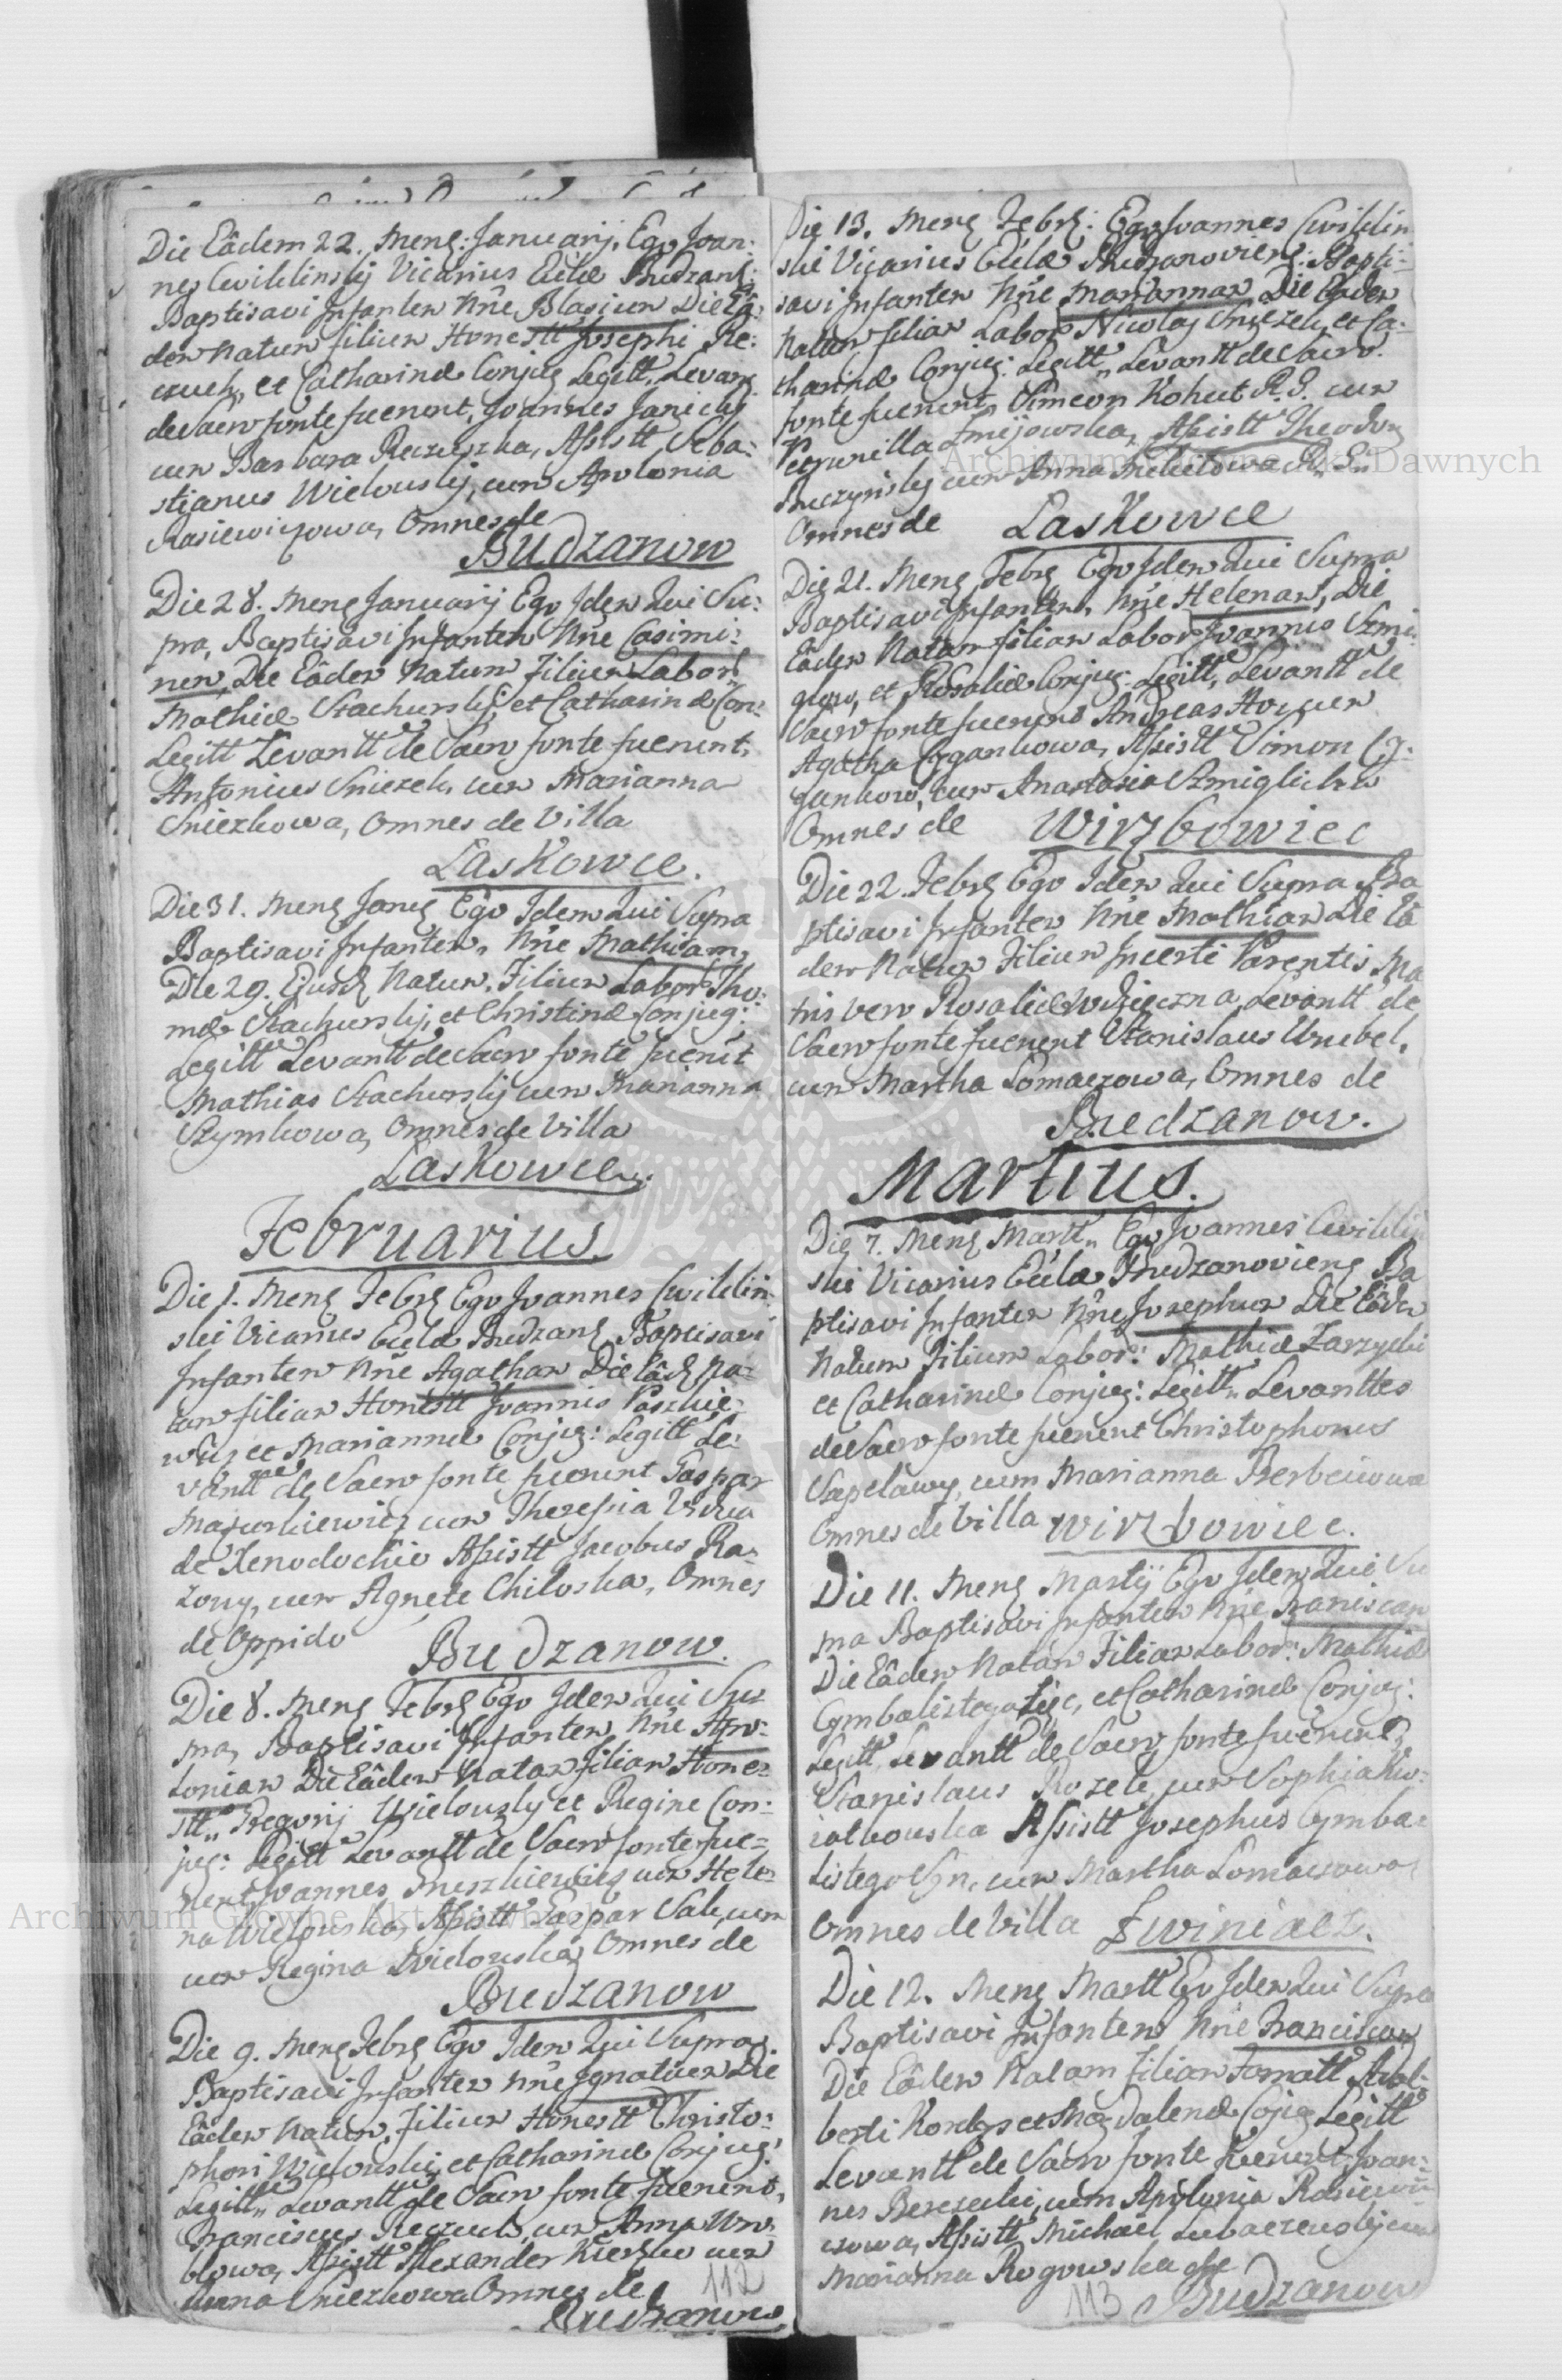 Die Eâdem 22. Mens: Januarij, Ego Joan:
nes Cwiklinskij Vicarius Eccłæ Budzans:
Baptisavi Infantem Nñe Blasium Die Eâ:
dem Natum filium Honestt Josephi Re:
czuch, et Catharinæ Conjug Legitt. Levans
de Sacro fonte fuerunt, Joannes Janickij
cum Barbara Reczuszka, Assistt Seba:
stianus Wielouskij, cum Apolonia
Rasiewiczowa, Omnes de
Budzanow
Die 28. Mens Januarij Ego Idem Qui Su:
pra, Baptisavi Infantem Nñe Casimi:
rum, Die Eâdem Natum Filium Labor
Mathiæ Stachurskij et Catharinæ Con:
Legitt Levantt de Sacro fonte fuerunt,
Antonius Sniezek, cum Marianna
Sniezkowa, Omnes de Villa
Laskowce.
Die 31. Mens Janrs Ego Idem Qui Supra
Baptisavi Infantem, Nñe Mathiam,
Die 29. Ejusd Natum, Filium Labor Tho:
mæ Stachurskij, et Christinæ Conjug:
Legitt Levantt de Sacro fonte fuerut
Mathias Stachurskij cum Marianna
Szymkowa, Omnes de Villa
Laskowce.
Februarius.
Die 1. Mens Febrs Ego Joannes Cwiklin:
ski Vicarius Eccłæ Budzans Baptisavi
Infantem Nñe Agatham Die Eâd Na:
tam filiam Honestt Joannis Paszkie:
wicz et Mariannæ Conjug: Legitt Le:
vantt de Sacro fonte fuerunt Gaspar
Mazurkiewicz cum Theressia Vidua
de Xenodochio Assistt Jacobus Ra:
zony, cum Agnete Chiloska, Omnes
de Oppido Budzanow.
Die 8. Mens Febrs Ego Idem Qui Su:
pra, Baptisavi Infantem, Nñe Apo:
loniam Die Eâdem Natam Filiam Hone:
stt Gregorij Wielouskij et Reginæ Con:
jug: Legitt Levantt de Sacro fonte fue:
runt, Joannes Meszkiewicz cum Hele:
na Wielouska, Assistt Gaspar Sale, cum
cum Regina Wielouska, Omnes de
Budzanow
Die 9. Mens Febrs Ego Idem Qui Supra
Baptisavi Infantem Nñe Ignatium Die
Eâdem Natum, Filium Honestt Christo:
phori Wielouski, et Catharinæ Conjug:
Legitt Levantt de Sacro fonte fuerunt,
Franciscus Reczuch, cum Anna Wro:
blowa, Assistt Alexander cum
Anna Sniezkowa Omnes de
112
Budzanow
Die 13. Mens Febrs: Ego Joannes Cwiklin
ski Vicarius Eccłæ Budzanoviens: Bapti:
savi Infantem Nñe Mariannam Die Eadem
Natam filiam Labor Nicolaj Sniezek, et Ca:
tharinæ Conjug: Legitt Levantt de Sacro
fonte fuerunt, Simeon Kohut R. G. cum
Petrunilla Zmijowska, Assistt Theodor
Buczynskij cum Anna R. G.
Omnes de Laskowce
Die 21. Mens Febrs Ego Idem Qui Supra
Baptisavi Infantem, Nñe Helenam, Die
Eâdem Natam filiam Labor Joannis Szmi:
glow, et Rosaliæ Conjug: Legitt, Levantt de
Sacro fonte fuerunt Andreas cum
Agatha Cygankowa, Assistt Simon Cy:
gankow, cum Anastasia
Omnes de Wirzbowiec
Die 22. Febrs Ego Idem Qui Supra Ba
ptisavi Infantem Nñe Mathiam Die Eâ
dem Natum Filium Incerti Parentis, Ma
tris vero Rosaliæ Levantt de
Sacro fonte fuerunt Stanislaus Wrubel,
cum Martha Lomaczowa, Omnes de
Budzanow.
Martius.
Die 7. Mens Martt Ego Joannes Cwiklin
ski Vicarius Eccłæ Budzanoviens Ba
ptisavi Infantem Nñe Josephum Die Eâdem
Natum Filium Labor: Mathiæ Zarzycki
et Catharinæ Conjug: Legitt Levanttes
de Sacro fonte fuerunt Christophorus
Szapelawy, cum Marianna Berbeciowa
Omnes de Villa Wirzbowiec.
Die 11. Mens Martij Ego Idem Qui Su
pra Baptisavi Infantem Nñe Franiscam
Die Eâdem Natam Filiam Labor: Mathiæ
et Catharinæ Conjug:
Legitt Levantt de Sacro fonte fuerunt,
Stanislaus Rozek, cum Sophia Kw:
iatkouska Assistt Josephus Cymba:
listego Syn, cum Martha Lomaczowa
Omnes de Villa Zwiniacz.
Die 12. Mens Martt Ego Idem Qui Supra
Baptisavi Infantem Nñe Franciscam
Die Eâdem Natam Filiam Famatt Adal:
berti et Magdalenæ Cojug Legitt
Levantt de Sacro fonte fuerunt, Joan:
nes Berezecki, cum Apolonia Rasiewi:
czowa, Assistt Michael cum
Marianna Rogowska de
113 Budzanow
Archiwum Główne Akt Dawnych
Archiwum Główne Akt Dawnych